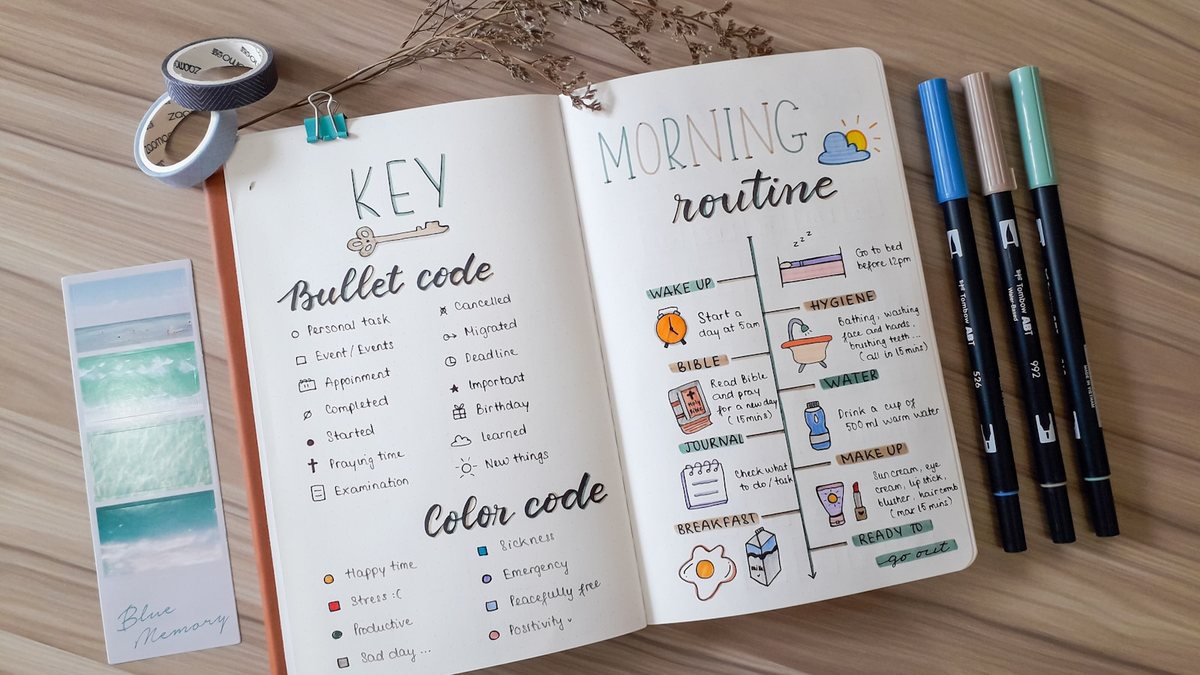 zoomoea
KEY
Bullet code
Personal task
Event/Events
Appoinment
Completed
Started
Praying time
Examination
Cancelled
Migrated
Deadline
Important
Birthday
learned
New things
Color code
Happy time
Stress :(
Productive
Sad day ...
Sickness
Emergency
Peacefully free
Positivity
MORNING
routine
zzz
Go to bed
before 12pm
WAKE UP
Start a
day at 5am
HYGIENE
Bathing, washing
face and hands,
brushing teeth ...
(all in 15mins)
BIBLE
Holy
BIBLE
Read Bible
and pray
for a new day
(15mins)
WATER
Drink a cup of
500 ml warm water
JOURNAL
Check what
to do / task
MAKE UP
Sun cream, eye
cream, lip stick,
blusher, hair comb
(max 15 mins)
BREAKFAST
Milk
READY TO
go out
Blue
Memory
Tombow ABT
526
Tombow ABT
Water Based
992